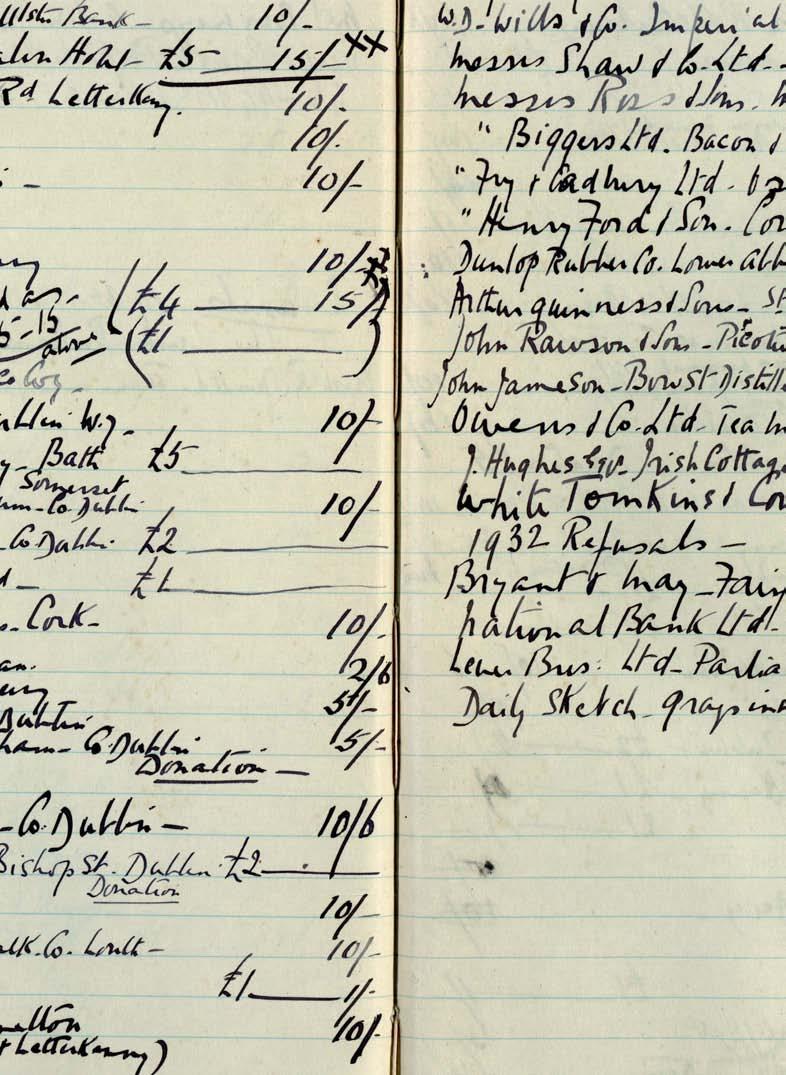 Ulster Bank - 10/-
Hotel £5 15/- xx
Rd Letterkenny. 10/-
10/-
10/-
10/-
£4 15/-
5-15 above £1
Wg.
10/-
Bath £5
Somerset
Co Dublin 10/-
Co Dublin £2
£1
Cork - 10/-
2/6
5/-
Dublin
Co Dublin 5/-
Donation -
Co. Dublin - 10/6
Bishop St. Dublin £2
Donation
10/-
Co. Louth - 10/-
£1 1/-
10/-
Letterkenny)
W.D. Wills & Co. Imperial
Messrs Shaw & Co. Ltd. -
Messrs Ross & Sons.
" Biggers Ltd. Bacon &
" Fry & Cadbury Ltd.
" Henry Ford & Son. Cor
Dunlop Rubber Co. Lower Abb
Arthur Guinness & Sons - St
John Rawson & Sons -
John Jameson - Bow St Distille
Owens & Co. Ltd - Tea
J. Hughes Esqr. Irish Cottage
White Tomkins & Cou
1932 Refusals -
Bryant & May - Fair
National Bank Ltd -
Lever Bros: Ltd - Parlia
Daily Sketch - Grays inn